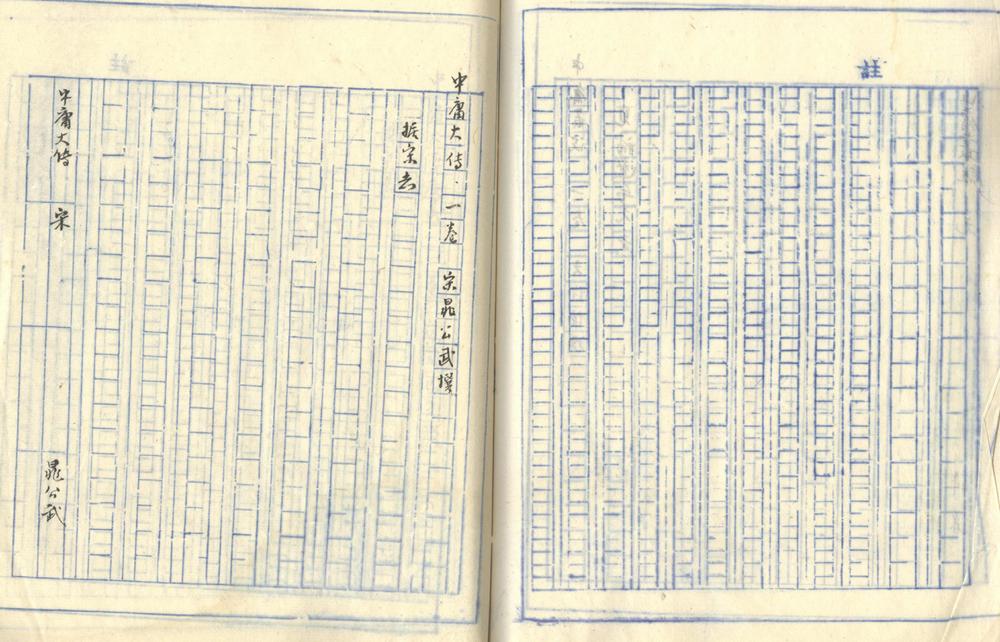 註
中庸大傳·一卷 宋晁公武撰
据宋志
中庸大傳 宋 晁公武